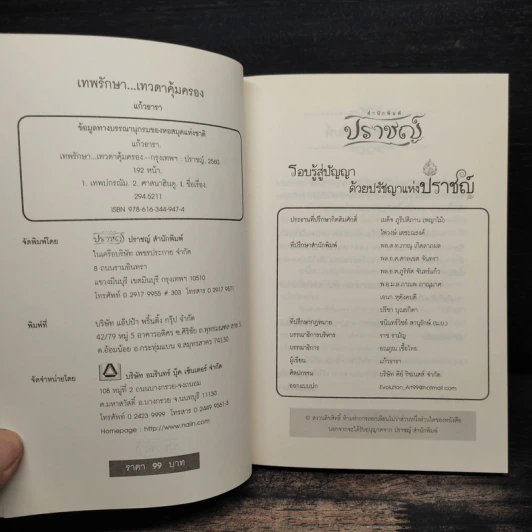 เทพรักษา...เทวดาคุ้มครอง
แก้วธารา
ข้อมูลทางบรรณานุกรมของหอสมุดแห่งชาติ
แก้วธารา.
เทพรักษา...เทวดาคุ้มครอง.--กรุงเทพฯ : ปราชญ์, 2560
192 หน้า.
1. เทพปกรณัม. 2. ศาสนาฮินดู. I. ชื่อเรื่อง.
294.5211
ISBN 978-616-344-947-4
จัดพิมพ์โดย
ปราชญ์ ปราชญ์ สำนักพิมพ์
ในเครือบริษัท เพชรประกาย จำกัด
8 ถนนรามอินทรา
แขวงมีนบุรี เขตมีนบุรี กรุงเทพฯ 10510
โทรศัพท์ 0 2917 9955 # 303 โทรสาร 0 2917 9870
พิมพ์ที่
บริษัท แอ๊ปป้า พริ้นติ้ง กรุ๊ป จำกัด
42/79 หมู่ 5 อาคารอดิศร ซ.ศิริชัย ถ.พุทธมณฑล สาย 5
ต.อ้อมน้อย อ.กระทุ่มแบน จ.สมุทรสาคร 74130
จัดจำหน่ายโดย
บริษัท อมรินทร์ บุ๊ค เซ็นเตอร์ จำกัด
108 หมู่ที่ 2 ถนนบางกรวย-จงถนอม
ต.มหาสวัสดิ์ อ.บางกรวย จ.นนทบุรี 11130
โทรศัพท์ 0 2423 9999 โทรสาร 0 2449 9561-6
Homepage : http://www.naiin.com
ราคา 99 บาท
สำนักพิมพ์
ปราชญ์
รอบรู้สู่ปัญญา
ด้วยปรัชญาแห่งปราชญ์
ประธานที่ปรึกษากิตติมศักดิ์
ที่ปรึกษาสำนักพิมพ์
ที่ปรึกษากฎหมาย
บรรณาธิการบริหาร
บรรณาธิการ
ผู้เขียน แก้วธารา
ศิลปกรรม
ออกแบบปก Evolution_Art99@hotmail.com
© สงวนลิขสิทธิ์ ห้ามทำการลอกเลียนไม่ว่าส่วนหนึ่งส่วนใดของหนังสือ
นอกจากจะได้รับอนุญาตจาก ปราชญ์ สำนักพิมพ์